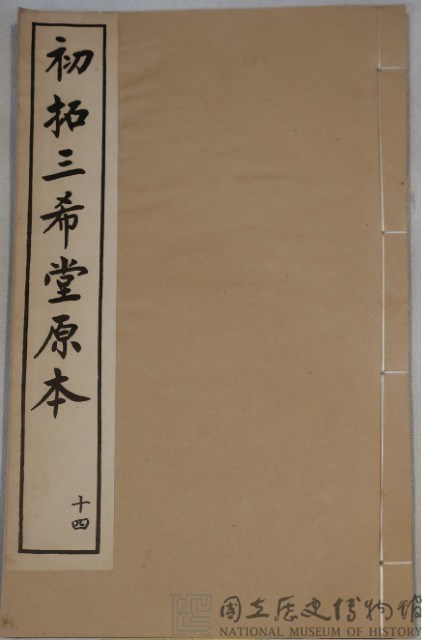 初拓三希堂原本
十四
國立歷史博物館
NATIONAL MUSEUM OF HISTORY